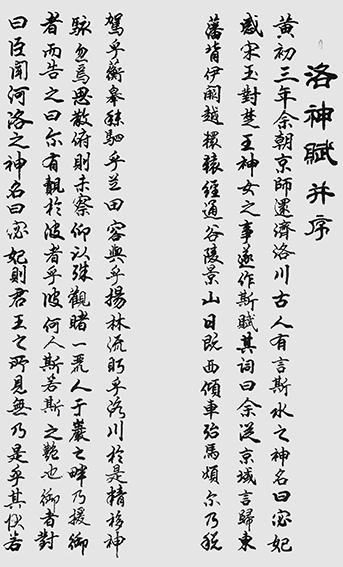 洛神賦并序
黃初三年余朝京師還濟洛川古人有言斯水之神名曰宓妃
感宋玉對楚王神女之事遂作斯賦其詞曰余從京域言歸東
藩背伊闕越轘轅經通谷陵景山日既西傾車殆馬煩尔乃稅
駕乎蘅皋秣駟乎芝田容與乎揚林流眄乎洛川於是精移神
駭忽焉思散俯則未察仰以殊觀睹一麗人于巖之畔乃援御
者而告之曰尔有覿於彼者乎彼何人斯若斯之艷也御者對
曰臣聞河洛之神名曰宓妃則君王之所見無乃是乎其狀若